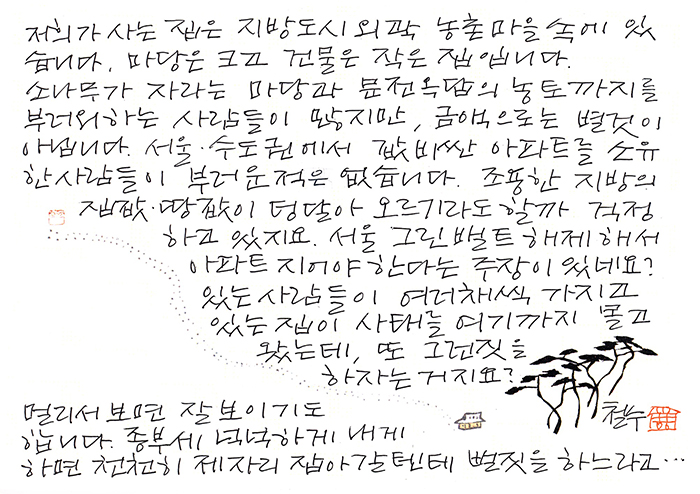 저희가 사는 집은 지방도시 외곽 농촌마을 속에 있
습니다. 마당은 크고 건물은 작은 집입니다.
소나무가 자라는 마당과 문전옥답의 농토까지를
부러워하는 사람들이 많지만, 금액으로는 별것이
아닙니다. 서울·수도권에서 값비싼 아파트를 소유
한 사람들이 부러운적은 없습니다. 조용한 지방의
집값·땅값이 덩달아 오르기라도 할까 걱정
하고 있지요. 서울 그린벨트 해제해서
아파트 지어야 한다는 주장이 있네요?
있는 사람들이 여러채씩 가지고
있는 집이 사태를 여기까지 몰고
왔는데, 또 그런짓을
하자는거지요?
멀리서 보면 잘 보이기도
합니다. 종부세 넉넉하게 내게
하면 천천히 제자리 잡아갈텐데 뻘짓을 하느라고…
철수